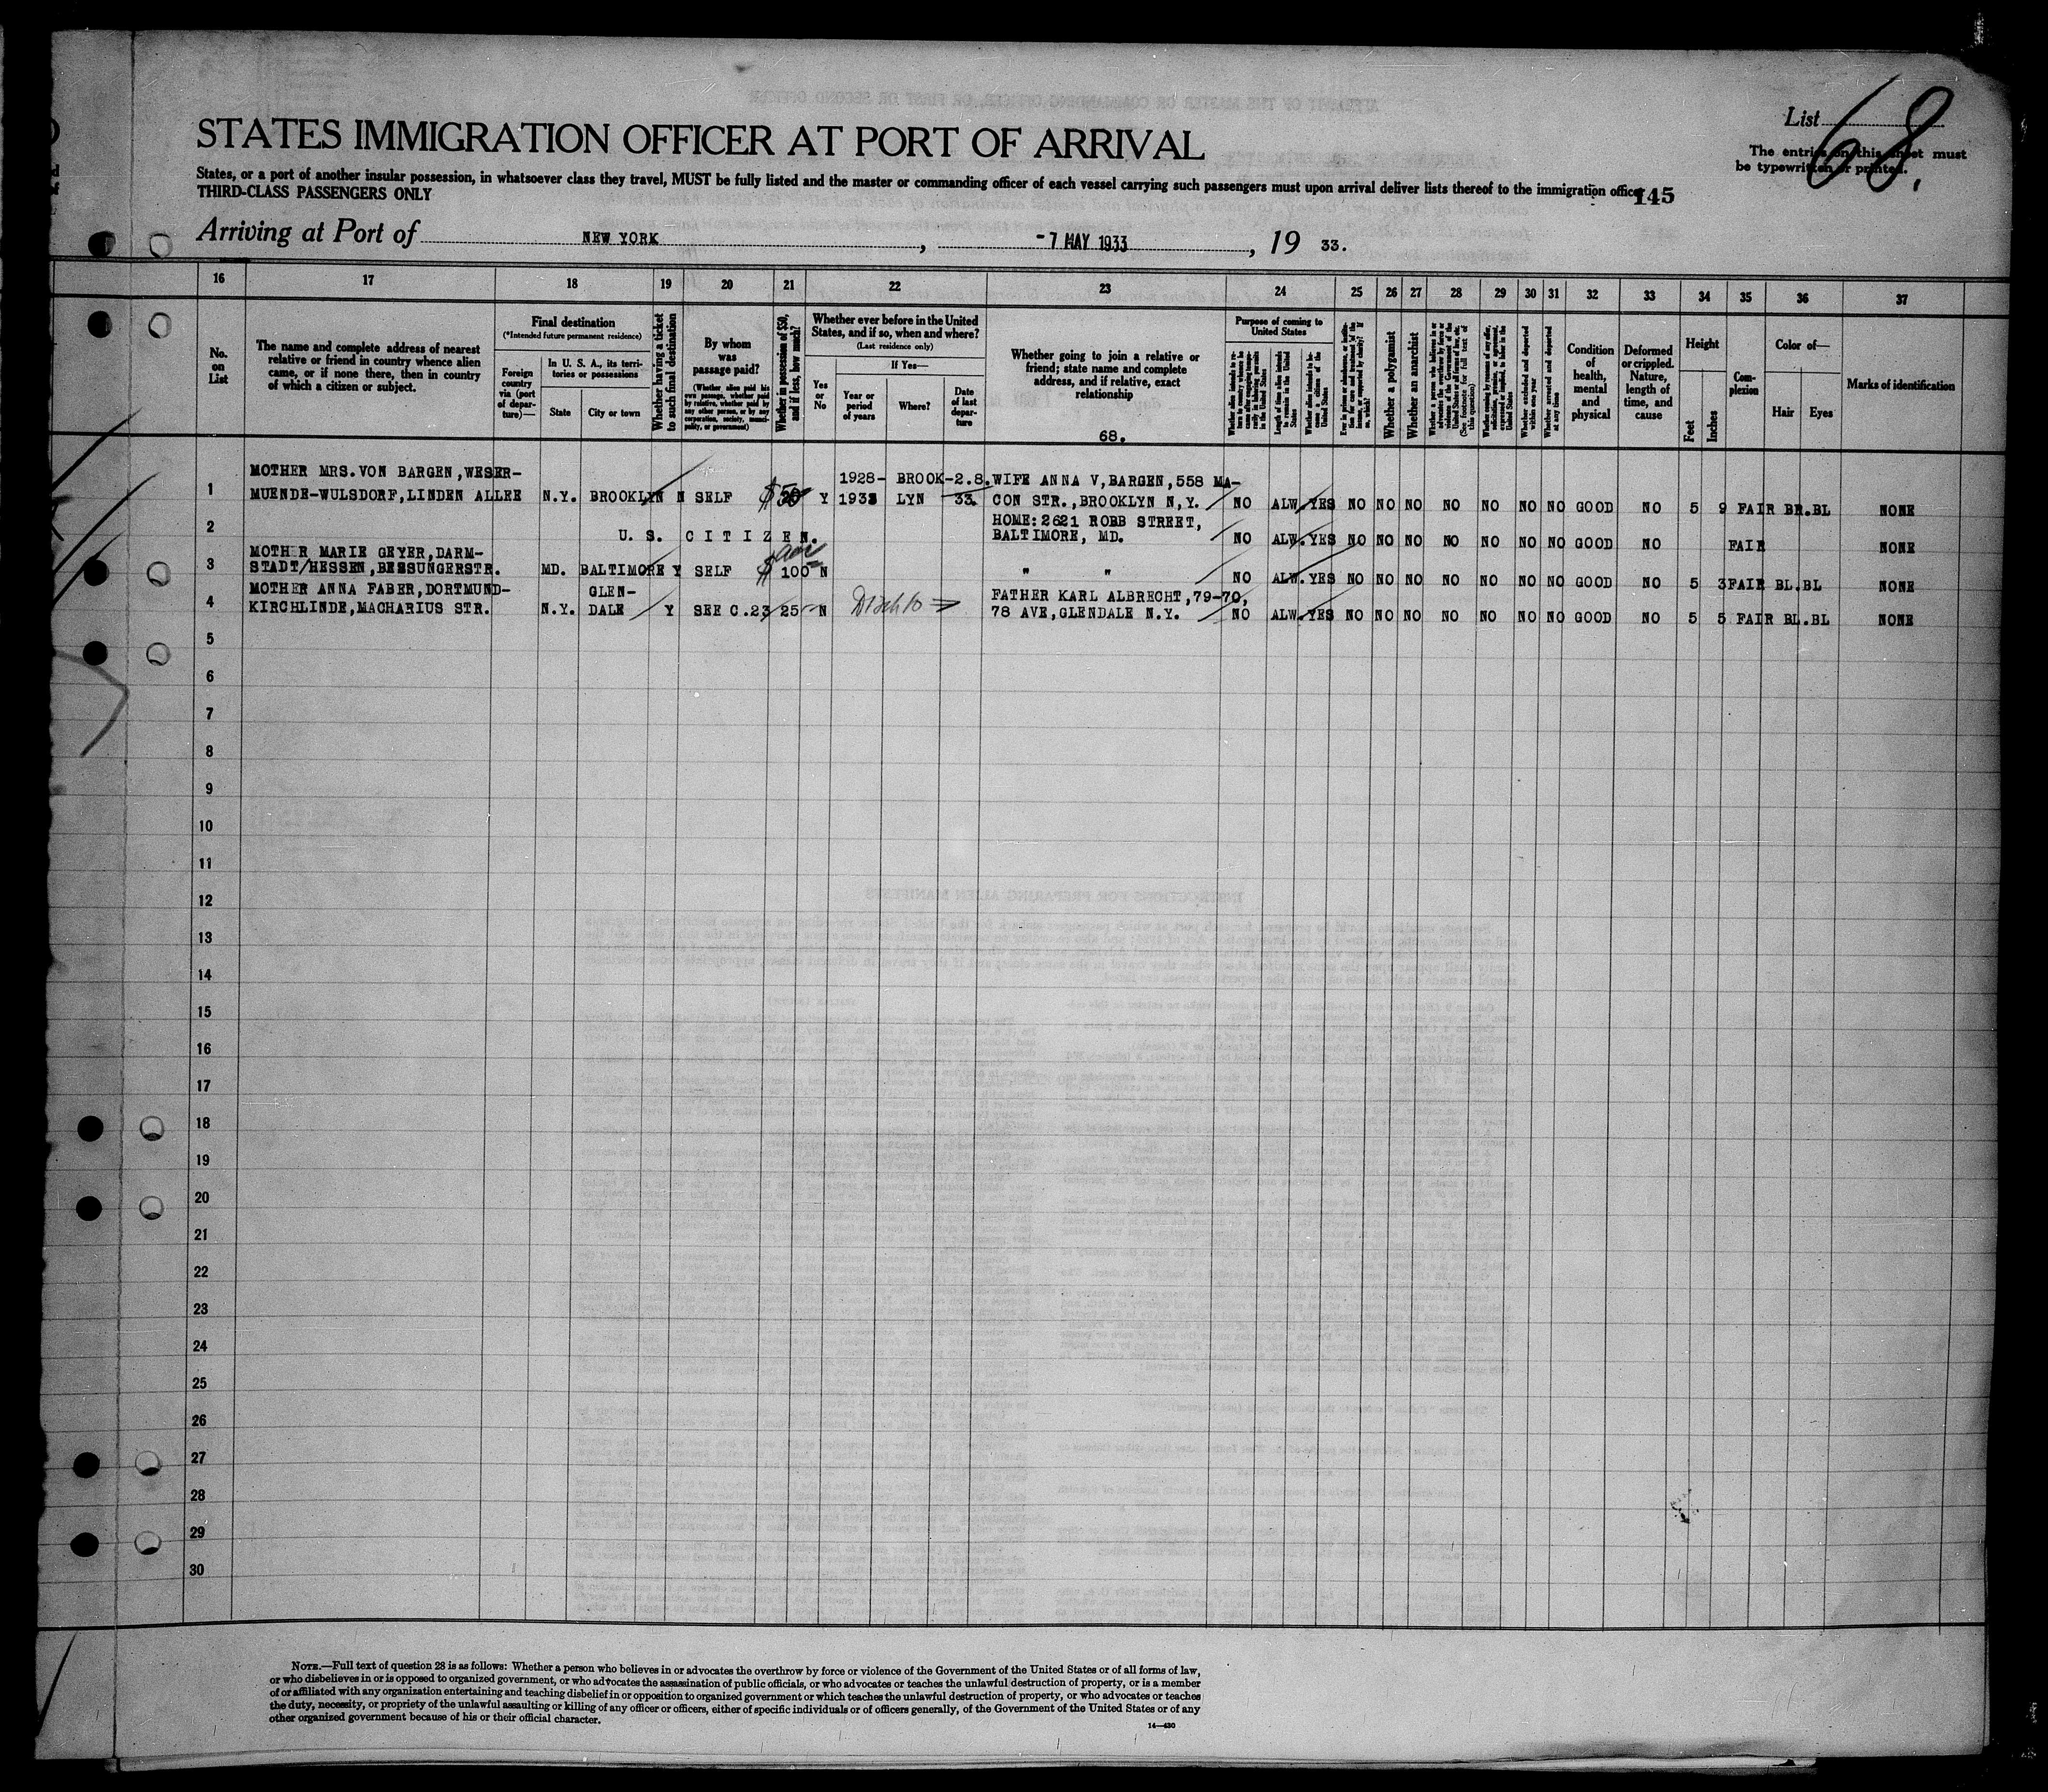 List 68.
STATES IMMIGRATION OFFICER AT PORT OF ARRIVAL
The entries on this sheet must
be typewritten or printed.
States, or a port of another insular possession, in whatsoever class they travel, MUST be fully listed and the master or commanding officer of each vessel carrying such passengers must upon arrival deliver lists thereof to the immigration officer
THIRD-CLASS PASSENGERS ONLY
145
Arriving at Port of NEW YORK, -7 MAY 1933, 19 33.
16 17 18 19 20 21 22 23 24 25 26 27 28 29 30 31 32 33 34 35 36 37
No.
on
List
The name and complete address of nearest
relative or friend in country whence alien
came, or if none there, then in country
of which a citizen or subject.
Final destination
(*Intended future permanent residence)
Foreign
country
via (port
of depar-
ture)—
In U. S. A., its terri-
tories or possessions
State
City or town
Whether having a ticket
to such final destination
By whom
was
passage paid?
(Whether alien paid his
own passage, whether paid
by relative, whether paid by
any other person, or by any
corporation, society, munici-
pality, or government)
Whether in possession of $50,
and if less, how much?
Whether ever before in the United
States, and if so, when and where?
(Last residence only)
Yes
or
No
If Yes—
Year or
period
of years
Where?
Date
of last
depar-
ture
Whether going to join a relative or
friend; state name and complete
address, and if relative, exact
relationship
68.
Purpose of coming to
United States
Length of time alien intends
to remain in the United
States
Whether alien intends to be-
come a citizen of the
United States
Whether a polygamist
Whether an anarchist
(See footnote for full text of
this question)
Whether excluded and deported
within one year
Whether arrested and deported
at any time
Condition
of
health,
mental
and
physical
Deformed
or crippled.
Nature,
length of
time, and
cause
Height
Feet
Inches
Com-
plexion
Color of—
Hair
Eyes
Marks of identification
MOTHER MRS.VON BARGEN,WESER- 1928- BROOK-2.8. WIFE ANNA V,BARGEN,558 MA-
1 MUENDE-WULSDORF,LINDEN ALLEE N.Y. BROOKLYN N SELF $50 Y 1933 LYN 33. CON STR.,BROOKLYN N,Y. NO ALW.YES NO NO NO NO NO NO NO GOOD NO 5 9 FAIR BR.BL NONE
HOME:2621 ROBB STREET,
2 U. S. CITIZEN. BALTIMORE, MD. NO ALW.YES NO NO NO NO NO NO NO GOOD NO FAIR NONE
MOTHER MARIE GEYER,DARM-
3 STADT/HESSEN,BESSUNGERSTR. MD. BALTIMORE Y SELF $100 N " " NO ALW.YES NO NO NO NO NO NO NO GOOD NO 5 3 FAIR BL.BL NONE
MOTHER ANNA FABER,DORTMUND- GLEN- FATHER KARL ALBRECHT,79-70,
4 KIRCHLINDE,MACHARIUS STR. N.Y. DALE Y SEE C.23 25 N 78 AVE,GLENDALE N.Y. NO ALW.YES NO NO NO NO NO NO NO GOOD NO 5 5 FAIR BL.BL NONE
5
6
7
8
9
10
11
12
13
14
15
16
17
18
19
20
21
22
23
24
25
26
27
28
29
30
NOTE.—Full text of question 28 is as follows: Whether a person who believes in or advocates the overthrow by force or violence of the Government of the United States or of all forms of law,
or who disbelieves in or is opposed to organized government, or who advocates the assassination of public officials, or who advocates or teaches the unlawful destruction of property, or is a member
of or affiliated with any organization entertaining and teaching disbelief in or opposition to organized government or which teaches the unlawful destruction of property, or who advocates or teaches
the duty, necessity, or propriety of the unlawful assaulting or killing of any officer or officers, either of specific individuals or of officers generally, of the Government of the United States or of any
other organized government because of his or their official character.
14—430